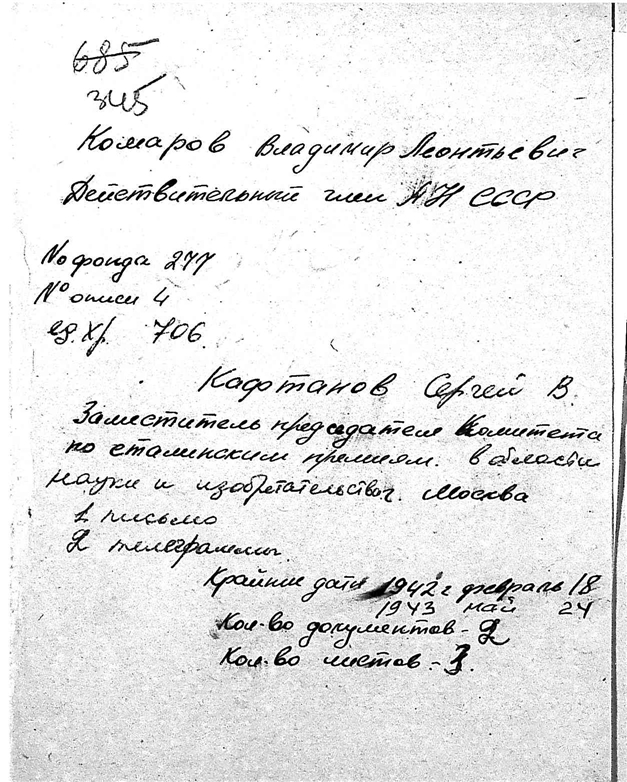 685
345
Комаров Владимир Леонтьевич
Действительный член АН СССР
№ фонда 277
№ описи 4
ед. хр. 706
Кафтанов Сергей В.
Заместитель председателя Комитета
по сталинским премиям. в области
науки и изобретательства. Москва
1 письмо
2 телеграммы
Крайние даты 1942 г февраль 18
1943 май 24
Кол-во документов - 2
Кол-во листов - 3.